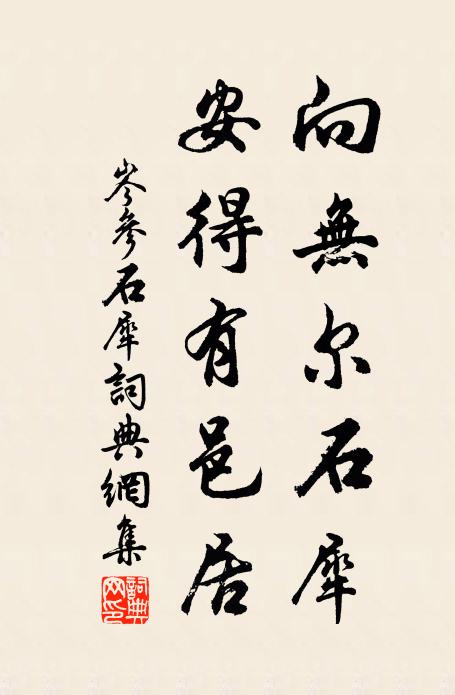 向無尔石犀
安得有邑居
岑參石犀詞典網集
詞典网印